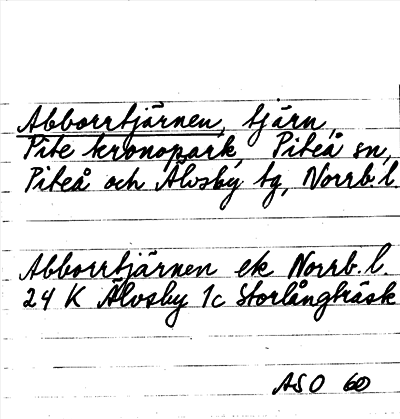 Abborrtjärnen, tjärn,
Pite kronopark, Piteå sn,
Piteå och Älvsby tg, Norrb. l.
Abborrtjärnen ek Norrb. l.
24 K Älvsby 1c Storlångträsk
ASO 60